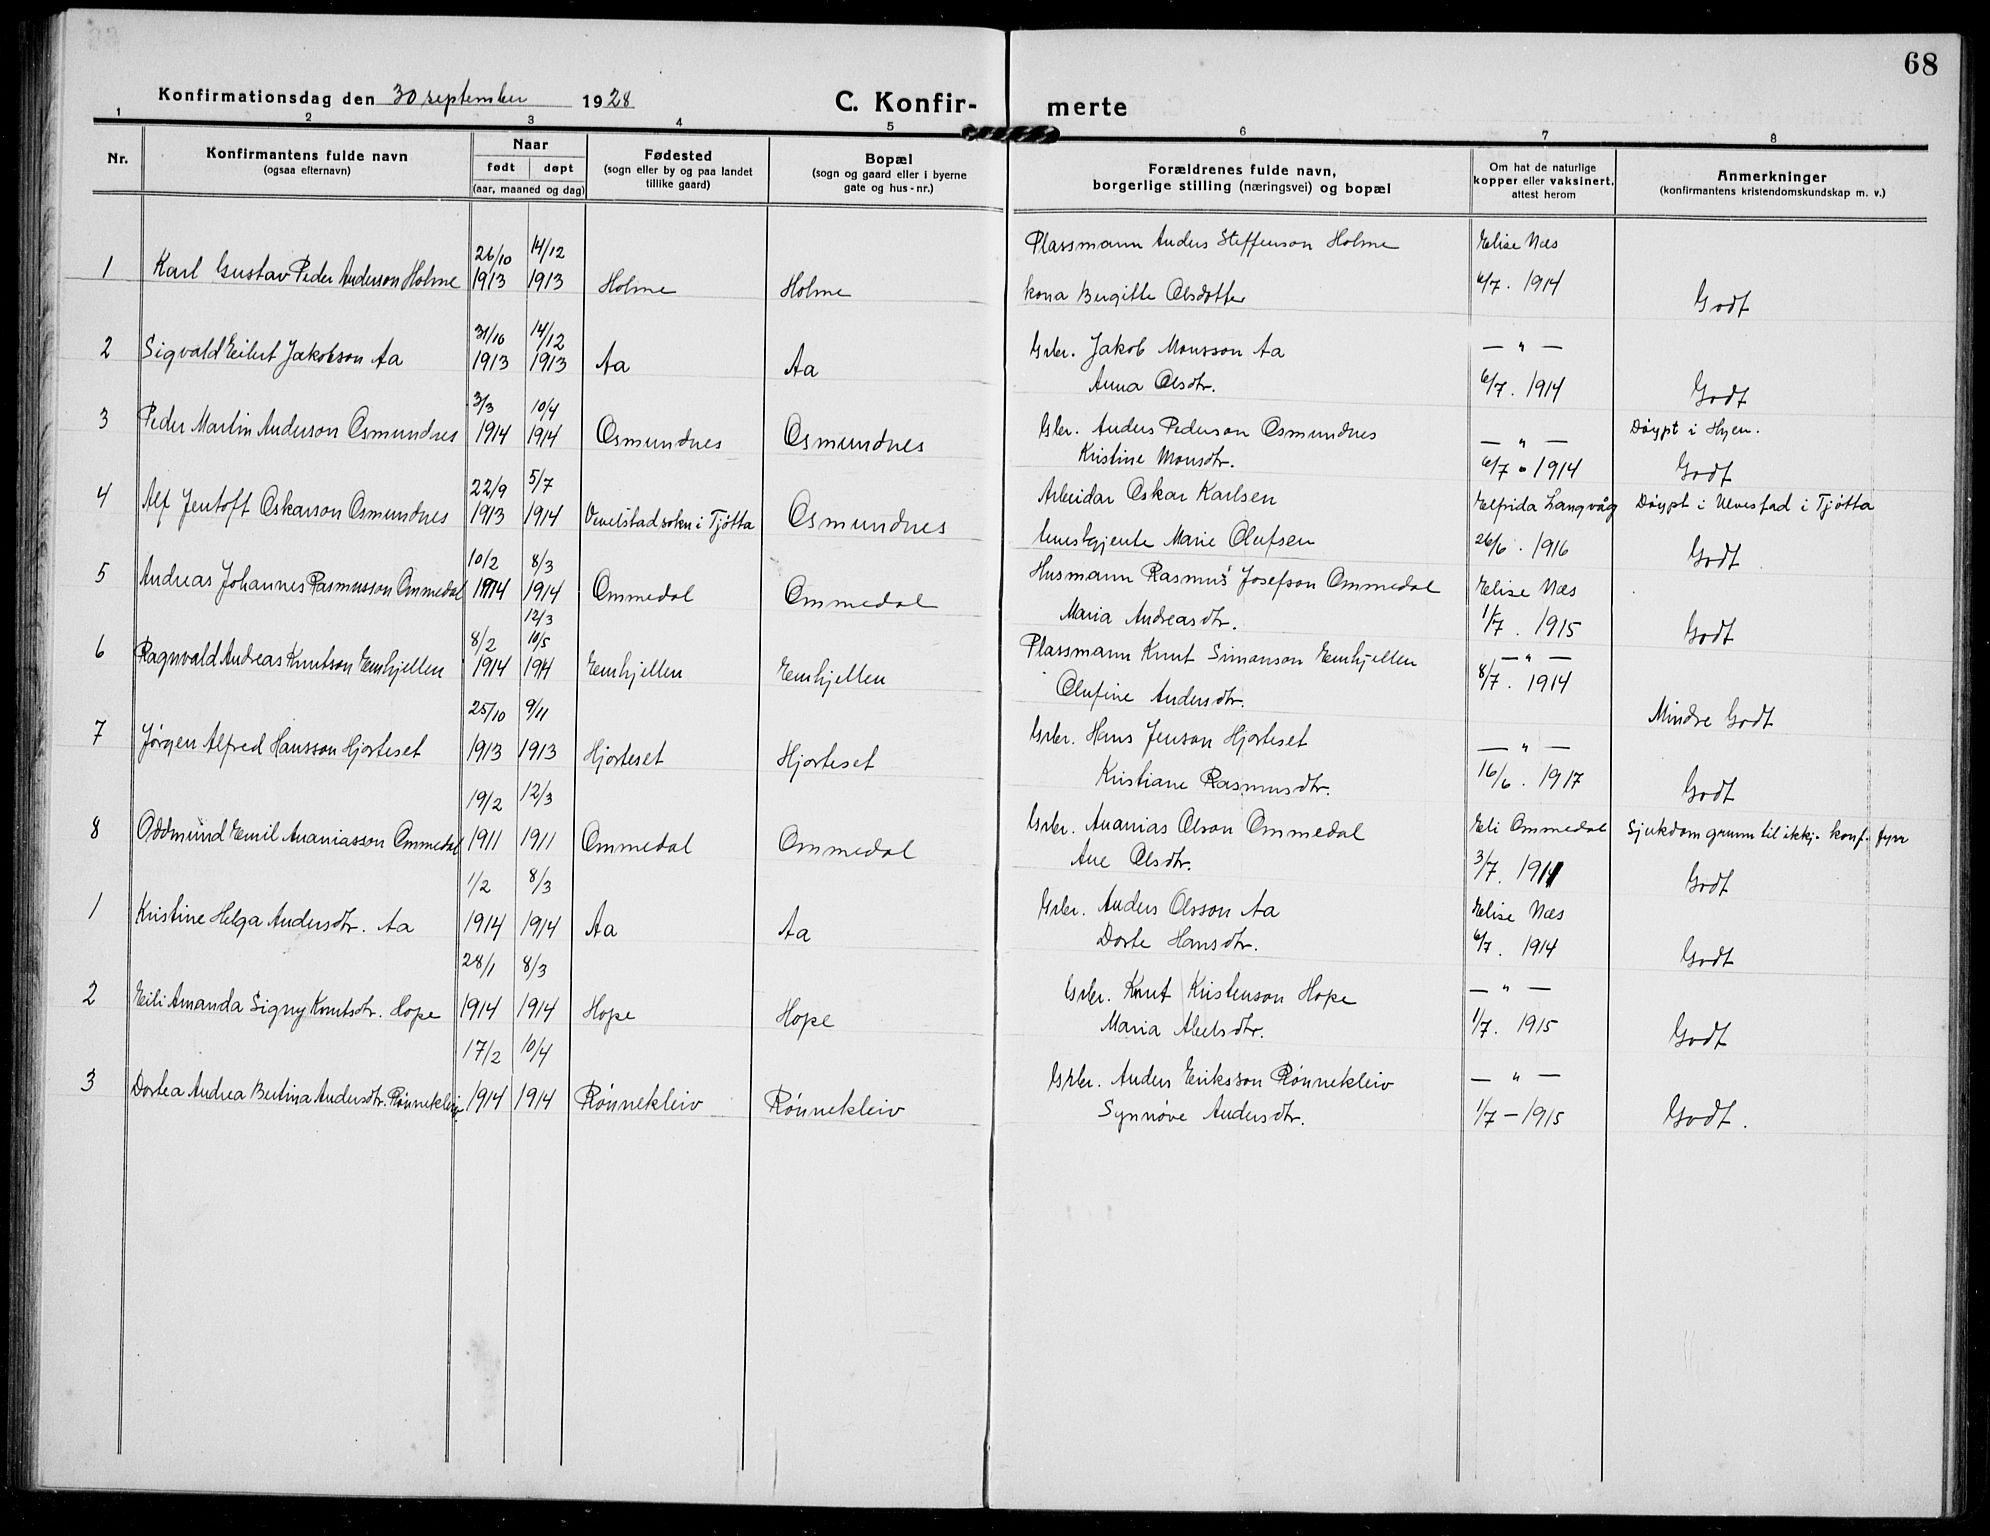 68
Konfirmationsdag den 30 september 1928
C. Konfir-
merte
1 2 3 4 5 6 7 8
Nr.
Konfirmantens fulde navn
(ogsaa efternavn)
Naar
født døpt
(aar, maaned og dag)
Fødested
(sogn eller by og paa landet
tillike gaard)
Bopæl
(sogn og gaard eller i byerne
gate og hus-nr.)
Forældrenes fulde navn,
borgerlige stilling (næringsvei) og bopæl
Om hat de naturlige
kopper eller vaksinert,
attest herom
Anmerkninger
(konfirmantens kristendomskundskap m. v.)
26/10 14/12 Plassmann Anders Steffenson Holme Elise Næs
1 Karl Gustav Peder Anderson Holme 1913 1913 Holme Holme kona Bergitte Olsdotter 6/7. 1914 Godt
31/10 14/12
2 Sigvald Eilert Jakobson Aa 1913 1913 Aa Aa Gbr. Jakob Monsson Aa — " —
Anna Olsdtr. 6/7. 1914 Godt
3/3 10/4
3 Peder Martin Anderson Osmundnes 1914 1914 Osmundnes Osmundnes Gbr. Anders Pederson Osmundnes — " — Døypt i Hyen.
Kristine Monsdtr. 6/7 1914 Godt
22/9 5/7
4 Alf Jentoft Oskarson Osmundnes 1913 1914 Vevelstad sokn i Tjøtta Osmundnes Arbeidar Oskar Karlsen Elfrida Langvåg Døypt i Vevelstad i Tjøtta
Marie Olufsen 26/6. 1916 Godt
10/2 8/3
5 Andreas Johannes Rasmusson Ommedal 1914 1914 Ommedal Ommedal Husmann Rasmus Josefson Ommedal Elise Næs
Maria Andreasdtr. 1/7. 1915 Godt
12/3
8/2 10/5
6 Ragnvald Andreas Knutson Emhjellen 1914 1914 Emhjellen Emhjellen Plassmann Knut Simonson Emhjellen — " —
Olufine Andersdtr. 8/7. 1914 Mindre Godt
25/10 9/11
7 Jørgen Alfred Hansson Hjorteset 1913 1913 Hjorteset Hjorteset Gbr. Hans Jenson Hjorteset — " —
Kristiane Rasmusdtr. 16/6. 1917 Godt
19/2 12/3
8 Oddmund Emil Ananiasson Ommedal 1911 1911 Ommedal Ommedal Gbr. Ananias Olson Ommedal Eli Ommedal Sjukdom grunn til ikkj. konf. fyrr
Ane Olsdtr. 3/7. 1911 Godt
1/2 8/3
1 Kristine Helga Andersdtr. Aa 1914 1914 Aa Aa Gbr. Anders Olsson Aa Elise Næs
Dorte Hansdtr. 6/7. 1914 Godt
28/1 8/3
2 Eili Amanda Signy Knutsdtr. Hope 1914 1914 Hope Hope Gbr. Knut Kristenson Hope — " —
Maria Abelsdtr. 1/7. 1915 Godt
17/2 10/4
3 Dortea Andrea Bertina Andersdtr. Rønnekleiv. 1914 1914 Rønnekleiv Rønnekleiv Gbr. Anders Eriksson Rønnekleiv — " —
Synnøve Andersdtr. 1/7 — 1915 Godt.